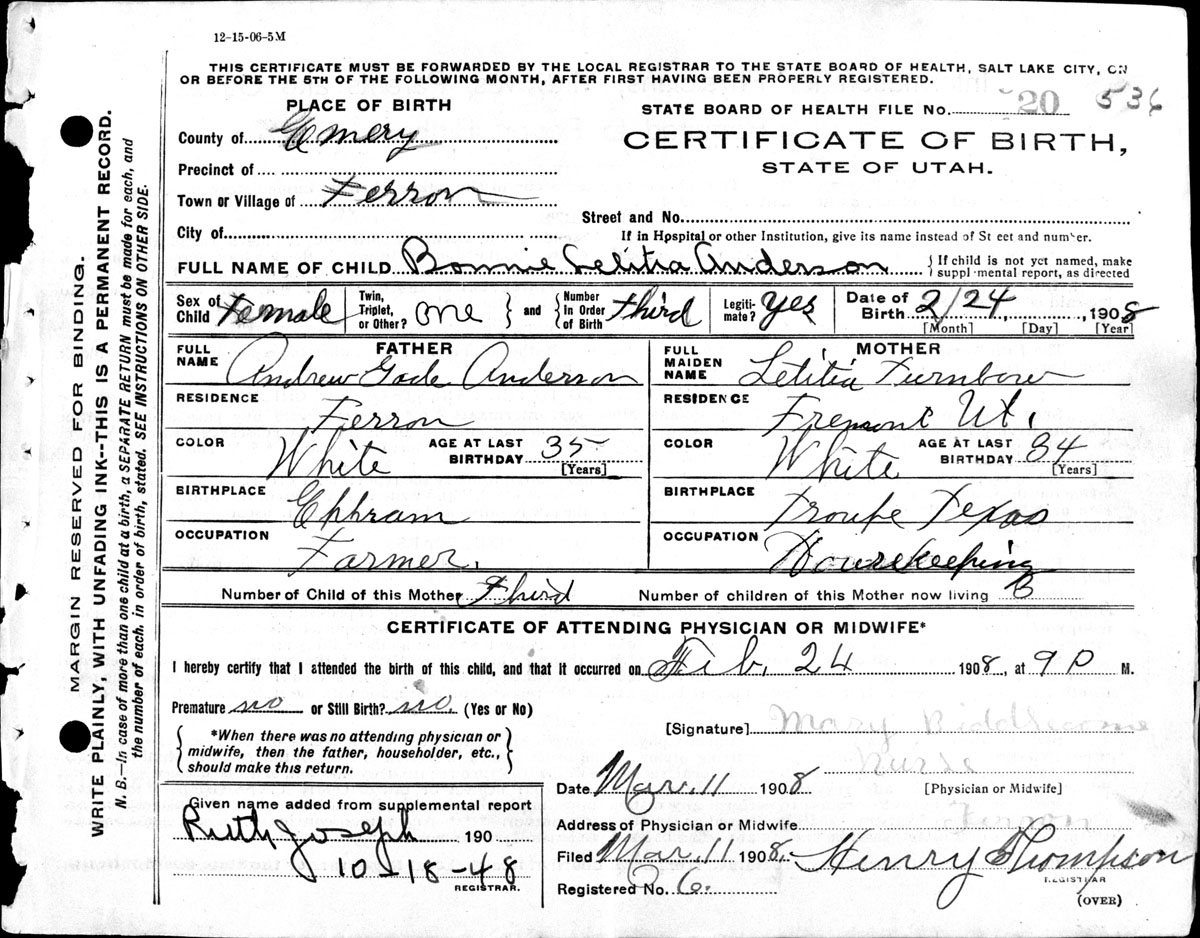 12-15-06-5M
THIS CERTIFICATE MUST BE FORWARDED BY THE LOCAL REGISTRAR TO THE STATE BOARD OF HEALTH, SALT LAKE CITY, ON
OR BEFORE THE 5TH OF THE FOLLOWING MONTH, AFTER FIRST HAVING BEEN PROPERLY REGISTERED.
PLACE OF BIRTH
STATE BOARD OF HEALTH FILE No. 20 536
County of Emery
CERTIFICATE OF BIRTH,
STATE OF UTAH.
Precinct of
Town or Village of Ferron
Street and No.
City of
If in Hospital or other Institution, give its name instead of St eet and number.
FULL NAME OF CHILD Bonnie Letitia Anderson { If child is not yet named, make suppl-mental report, as directed
Sex of Child Female
Twin, Triplet, or Other? One } and { Number In Order of Birth third
Legitimate? Yes
Date of Birth 2/24, 1908
[Month] [Day] [Year]
FATHER
FULL NAME Andrew Gade Anderson
RESIDENCE Ferron
COLOR White AGE AT LAST BIRTHDAY 35 [Years]
BIRTHPLACE Ephram
OCCUPATION Farmer.
MOTHER
FULL MAIDEN NAME Letitia Turnbow
RESIDENCE Fremont Ut.
COLOR White AGE AT LAST BIRTHDAY 34 [Years]
BIRTHPLACE Troupe Texas
OCCUPATION Housekeeping
Number of Child of this Mother third Number of children of this Mother now living
CERTIFICATE OF ATTENDING PHYSICIAN OR MIDWIFE*
I hereby certify that I attended the birth of this child, and that it occurred on Feb. 24 1908, at 9 P M.
Premature no or Still Birth? no. (Yes or No)
{ *When there was no attending physician or midwife, then the father, householder, etc., should make this return. }
[Signature] Mary Biddlecome
Nurse
[Physician or Midwife]
Date Mar. 11 1908
Address of Physician or Midwife Ferron
Filed Mar. 11 1908. Henry Thompson
REGISTRAR
Registered No. 6.
(OVER)
Given name added from supplemental report
Ruth Joseph 190
10-18-48
REGISTRAR.
MARGIN RESERVED FOR BINDING.
WRITE PLAINLY, WITH UNFADING INK--THIS IS A PERMANENT RECORD.
N. B.—In case of more than one child at a birth, a SEPARATE RETURN must be made for each, and
the number of each, in order of birth, stated. SEE INSTRUCTIONS ON OTHER SIDE.